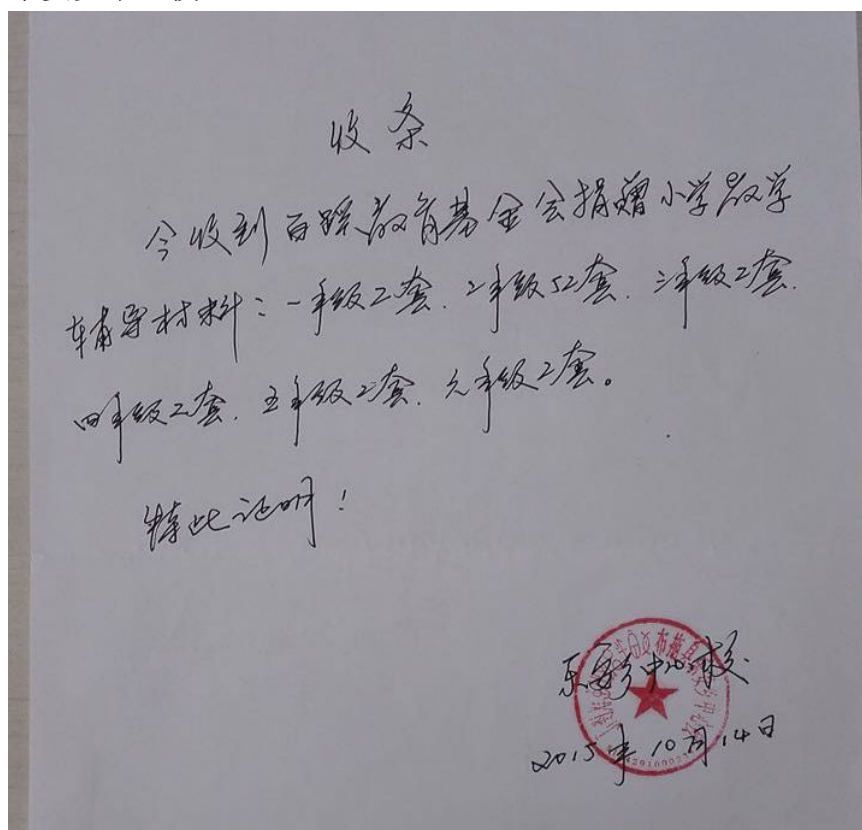 收条
今收到百踪教育基金会捐赠小学教学
辅导材料：一年级二套、二年级52套、三年级2套、
四年级二套、五年级2套、六年级2套。
特此证明！
乐安乡中心校
布拖县
2015年10月14日